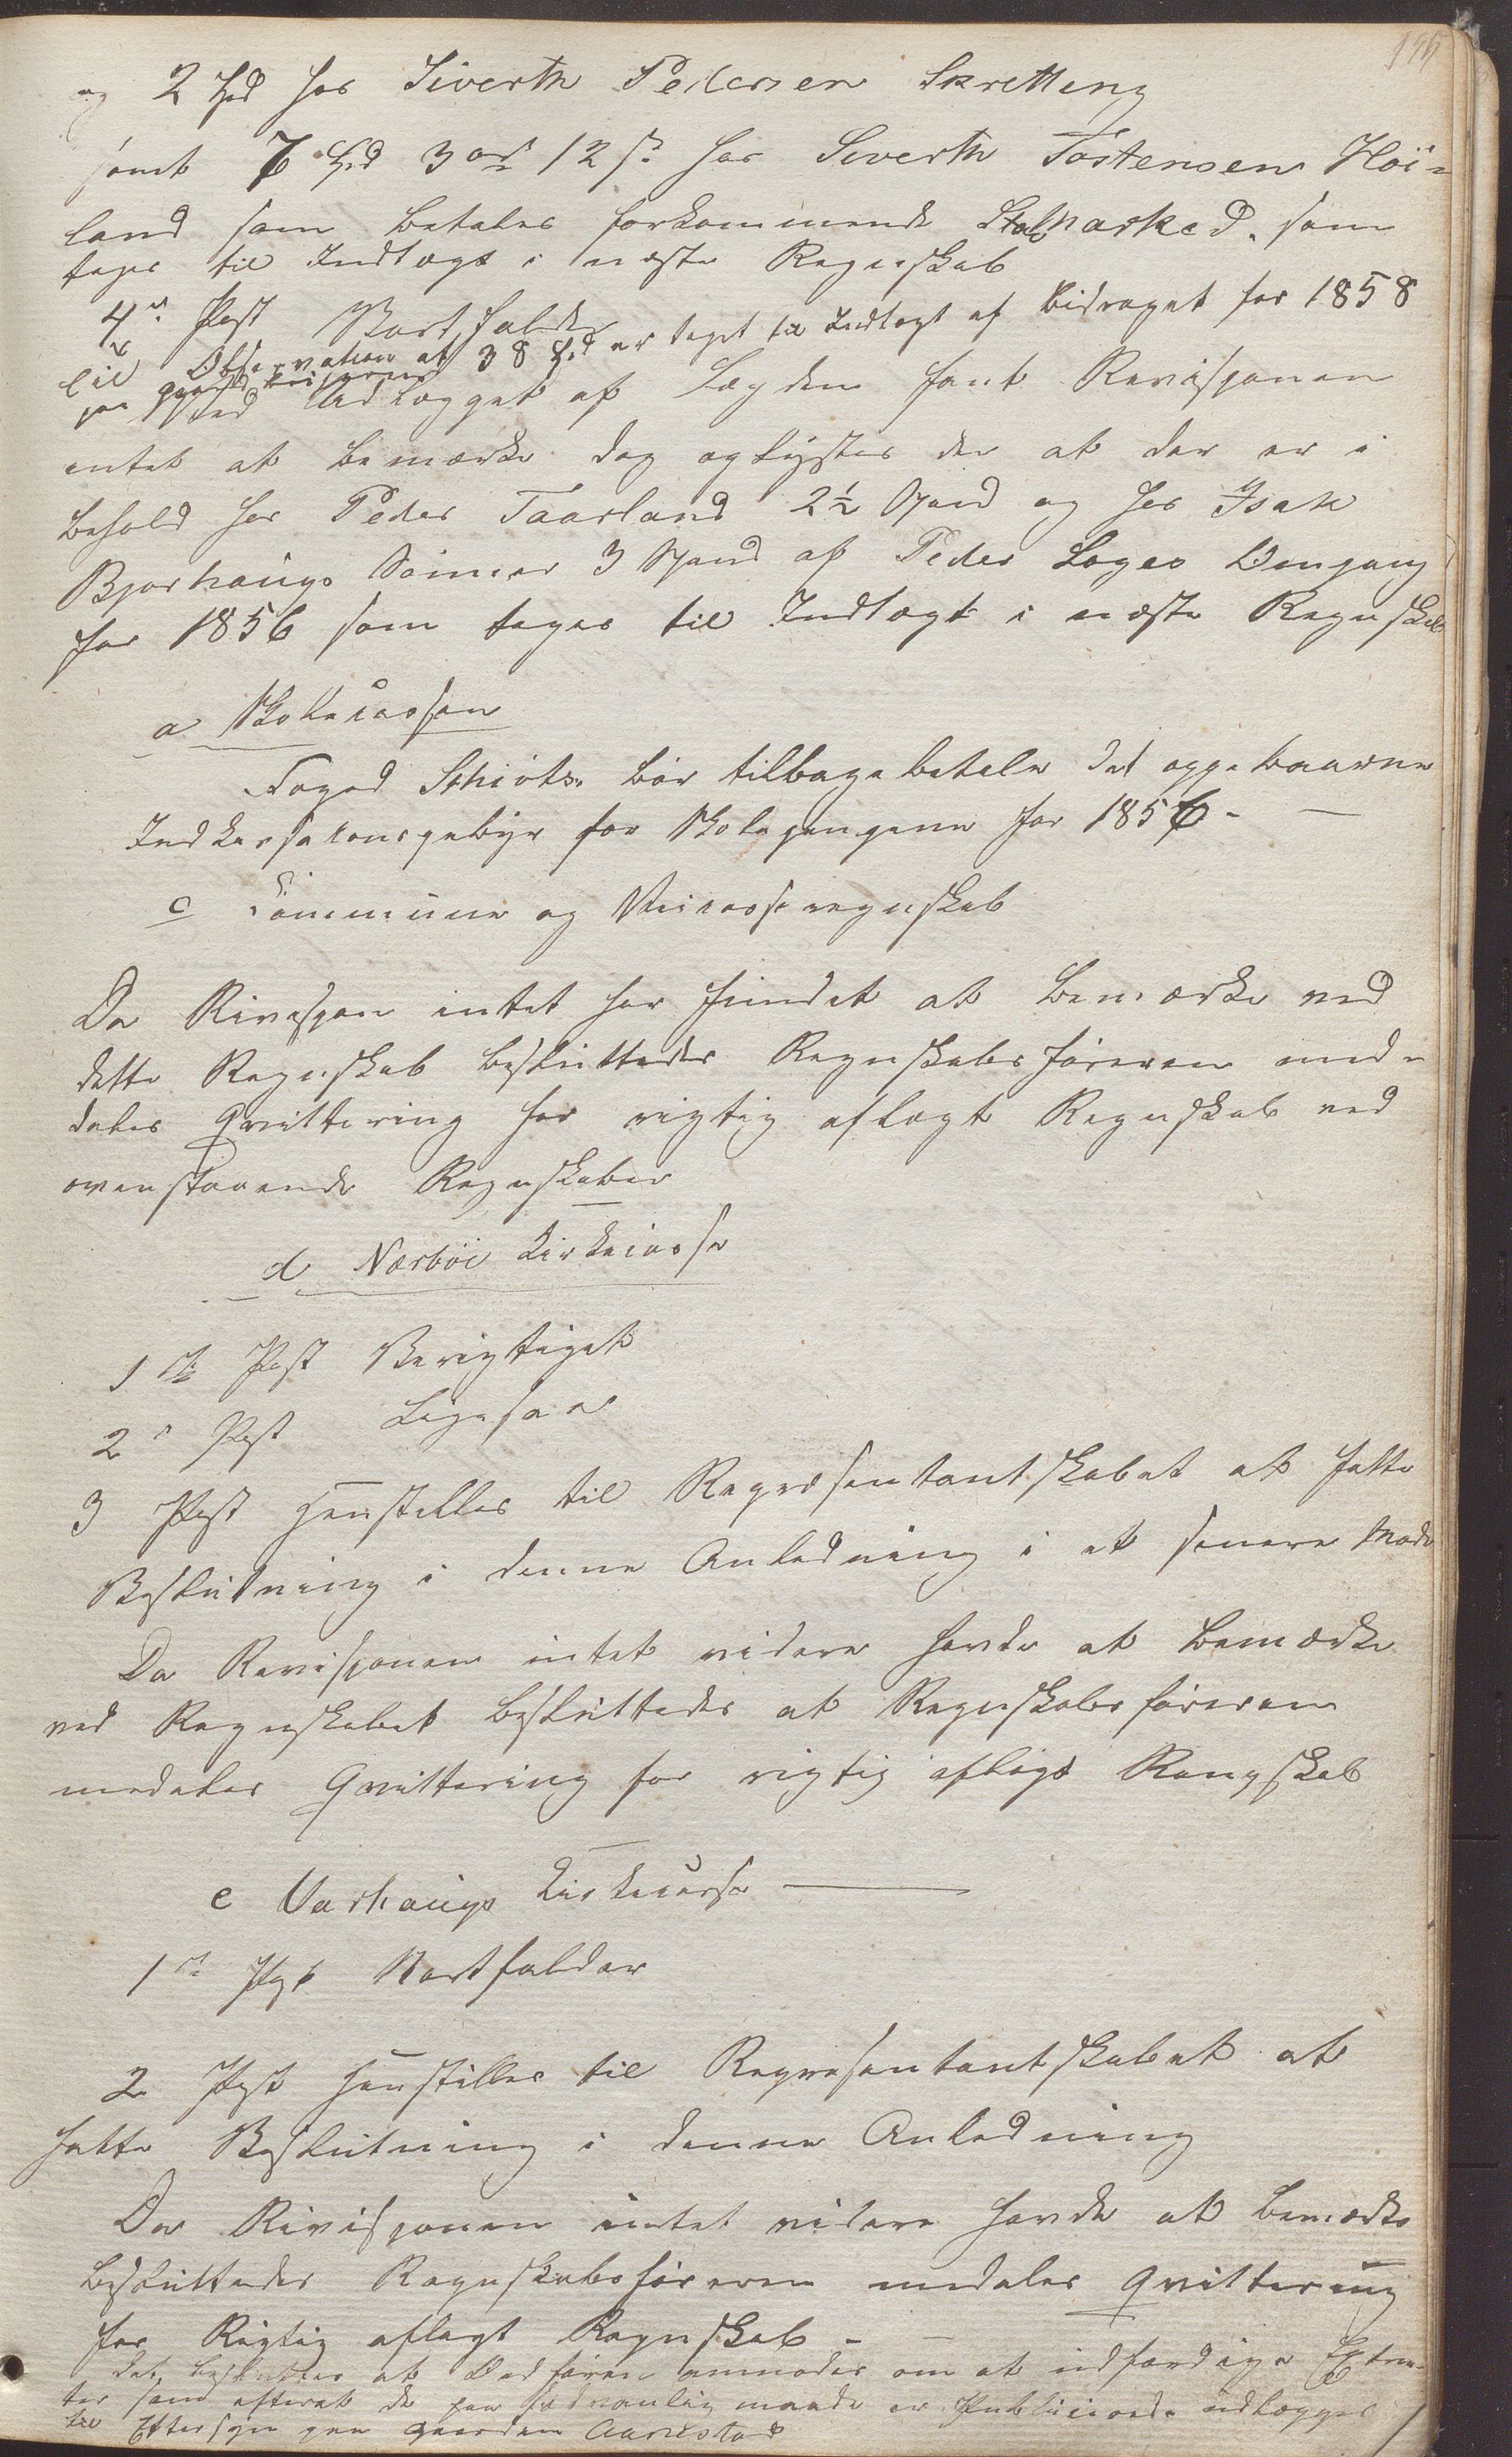 og 2 Spd hos Siverth Pedersen Skretting
samt 7 Spd 3 ort 12 s. hos Siverth Tostensen Höi-
land som betales forkommende Stabmarked. som
tages til Indtægt i næste Regnskab
4de Post Bortfalder
til Observation at 38 Spd er taget til Indtægt af Bidraget for 1858
Ved Udlægget af Lægden fant Revisjonen
intet at bemærke dog oplystes der at der er i
behold hos Peder Taarland 2½ Spand og hos Isak
Bjorhaugs Sönner 3 Spand af Peder Loges Omgang
for 1856 som tages til Indtægt i næste Regnskab
a Skolecassen
Foged Schiøtz bör tilbagebetale det oppebaarne
Indkassasionsgebyr for Skolepengene for 1856 -
c Commune og Veicasseregnskab
Da Rivisjon intet har fundet at bemærke ved
dette Regnskab besluttedes Regnskabsföreren med-
deles Qvittering for rigtig aflagt Regnskab ved
ovenstaaende Regnskaber
d Nærböe Kirkecasse
1ste Post Berigtiget
2 Post Ligesaa
3 Post Henstilles til Repræsentantskabet at fatte
Beslutning i denne Anledning i et senere Möde
Da Revisjonen intet videre havde at bemærke
ved Regnskabet besluttedes at Regnskabsföreren
medeles Qvittering for rigtig aflagt Rengskab
e Varhaugs Kirkecasse
1ste Post Bortfalder
2 Post Henstilles til Represantantskabet at
fatte Beslutning i denne Anledning
Da Rivisjonen intet videre havde at bemærke
besluttedes Regnskabsföreren medeles Qvittering
for Rigtig aflagt Regnskab -
Det besluttes at Ordfören anmodes om at udfærdige Extrac-
ter som efterat de paa sædvanlig maade er Publicerede udlægges
til Eftersyn paa Gaarden Aarrestad